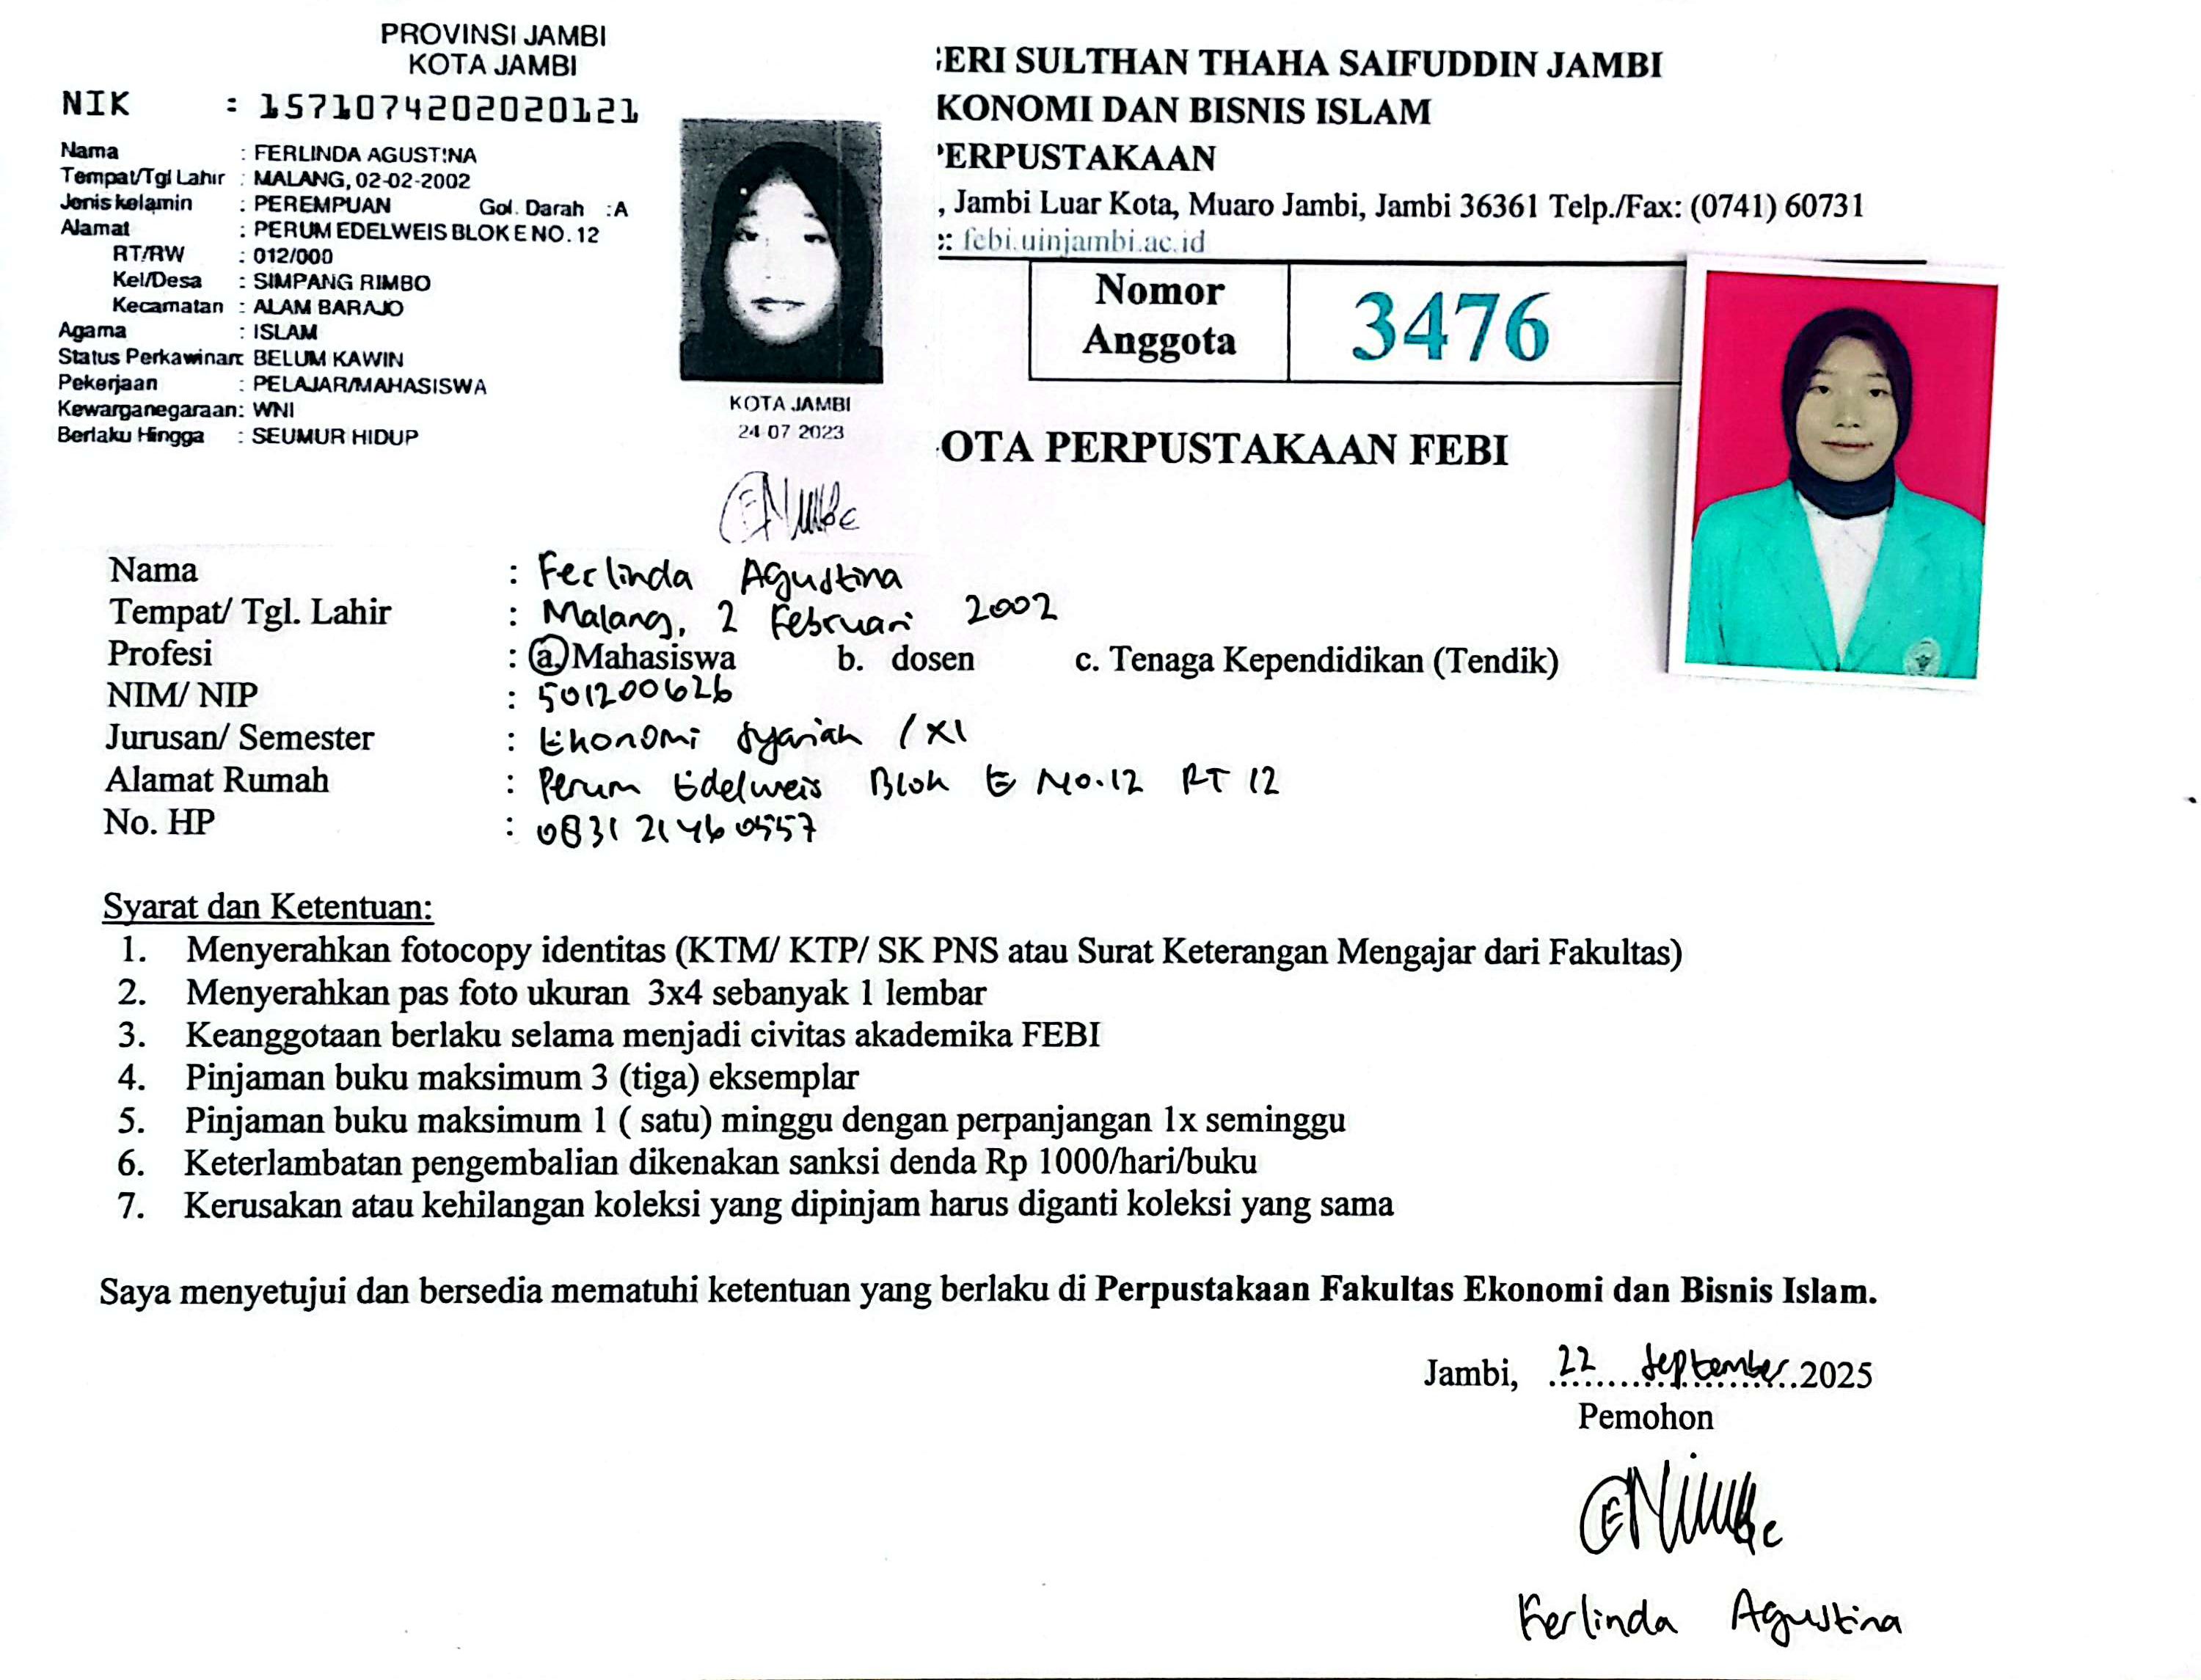 PROVINSI JAMBI
KOTA JAMBI
NIK : 1571074202020121
Nama : FERLINDA AGUSTINA
Tempat/Tgl Lahir : MALANG, 02-02-2002
Jenis kelamin : PEREMPUAN Gol. Darah : A
Alamat : PERUM EDELWEIS BLOK E NO. 12
RT/RW : 012/000
Kel/Desa : SIMPANG RIMBO
Kecamatan : ALAM BARAJO
Agama : ISLAM
Status Perkawinan: BELUM KAWIN
Pekerjaan : PELAJAR/MAHASISWA
Kewarganegaraan: WNI
Berlaku Hingga : SEUMUR HIDUP
KOTA JAMBI
24-07-2023
ERI SULTHAN THAHA SAIFUDDIN JAMBI
KONOMI DAN BISNIS ISLAM
ERPUSTAKAAN
, Jambi Luar Kota, Muaro Jambi, Jambi 36361 Telp./Fax: (0741) 60731
: febi.uinjambi.ac.id
Nomor
Anggota
3476
OTA PERPUSTAKAAN FEBI
Nama : Ferlinda Agustina
Tempat/ Tgl. Lahir : Malang, 2 Februari 2002
Profesi : a. Mahasiswa b. dosen c. Tenaga Kependidikan (Tendik)
NIM/ NIP : 501200626
Jurusan/ Semester : Ekonomi Syariah / XI
Alamat Rumah : Perum Edelweis Blok E No.12 RT 12
No. HP : 083121460557
Syarat dan Ketentuan:
1. Menyerahkan fotocopy identitas (KTM/ KTP/ SK PNS atau Surat Keterangan Mengajar dari Fakultas)
2. Menyerahkan pas foto ukuran 3x4 sebanyak 1 lembar
3. Keanggotaan berlaku selama menjadi civitas akademika FEBI
4. Pinjaman buku maksimum 3 (tiga) eksemplar
5. Pinjaman buku maksimum 1 ( satu) minggu dengan perpanjangan 1x seminggu
6. Keterlambatan pengembalian dikenakan sanksi denda Rp 1000/hari/buku
7. Kerusakan atau kehilangan koleksi yang dipinjam harus diganti koleksi yang sama
Saya menyetujui dan bersedia mematuhi ketentuan yang berlaku di Perpustakaan Fakultas Ekonomi dan Bisnis Islam.
Jambi, 22 September 2025
Pemohon
Ferlinda Agustina